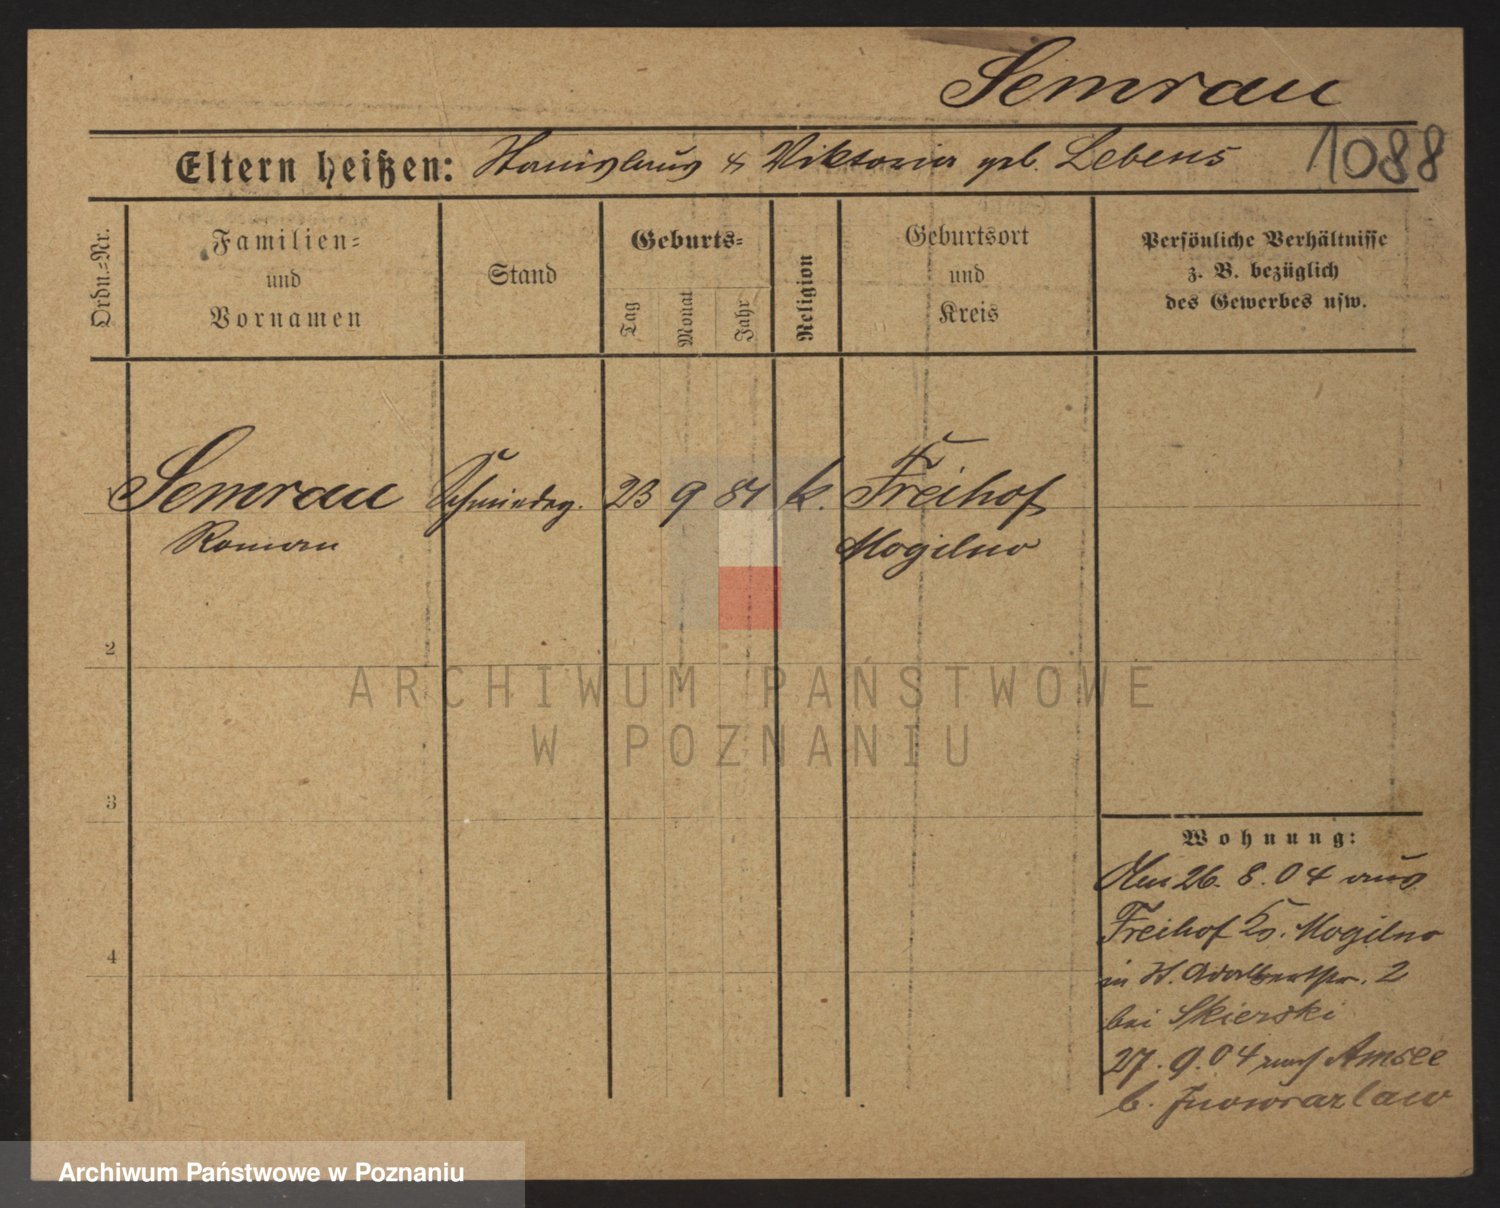 Semrau
1088
Eltern heißen: Stanislaus & Viktoria geb. Lebens
Ordn.=Nr.
Familien=
und
Vornamen
Stand
Geburts=
Tag
Monat
Jahr
Religion
Geburtsort
und
Kreis
Persönliche Verhältnisse
z. B. bezüglich
des Gewerbes usw.
Semrau Schmiedeg. 23 9 84 k. Freihof
Roman Mogilno
2
ARCHIWUM PAŃSTWOWE
W POZNANIU
3
Wohnung:
Am 26. 8. 04 aus
Freihof Kr. Mogilno
in St. Adalbertstr. 2
bei Skierski
27. 9. 04 nach Amsee
b. Inowrazlaw
4
Archiwum Państwowe w Poznaniu